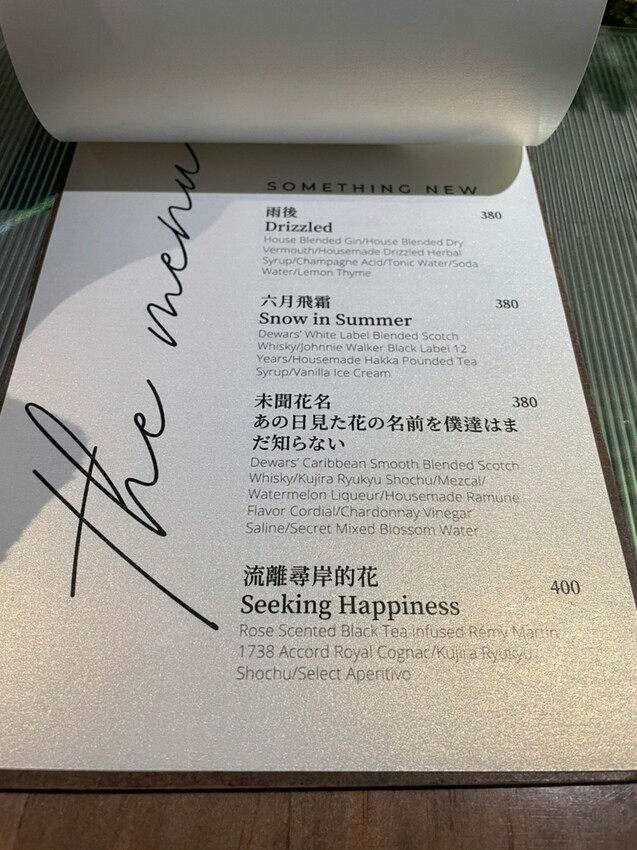 the menu
SOMETHING NEW
雨後
380
Drizzled
House Blended Gin/House Blended Dry
Vermouth/Housemade Drizzled Herbal
Syrup/Champagne Acid/Tonic Water/Soda
Water/Lemon Thyme
六月飛霜
380
Snow in Summer
Dewars' White Label Blended Scotch
Whisky/Johnnie Walker Black Label 12
Years/Housemade Hakka Pounded Tea
Syrup/Vanilla Ice Cream
未聞花名
380
あの日見た花の名前を僕達はま
だ知らない
Dewars' Caribbean Smooth Blended Scotch
Whisky/Kujira Ryukyu Shochu/Mezcal/
Watermelon Liqueur/Housemade Ramune
Flavor Cordial/Chardonnay Vinegar
Saline/Secret Mixed Blossom Water
流離尋岸的花
400
Seeking Happiness
Rose Scented Black Tea Infused Rémy Martin
1738 Accord Royal Cognac/Kujira Ryukyu
Shochu/Select Aperitivo